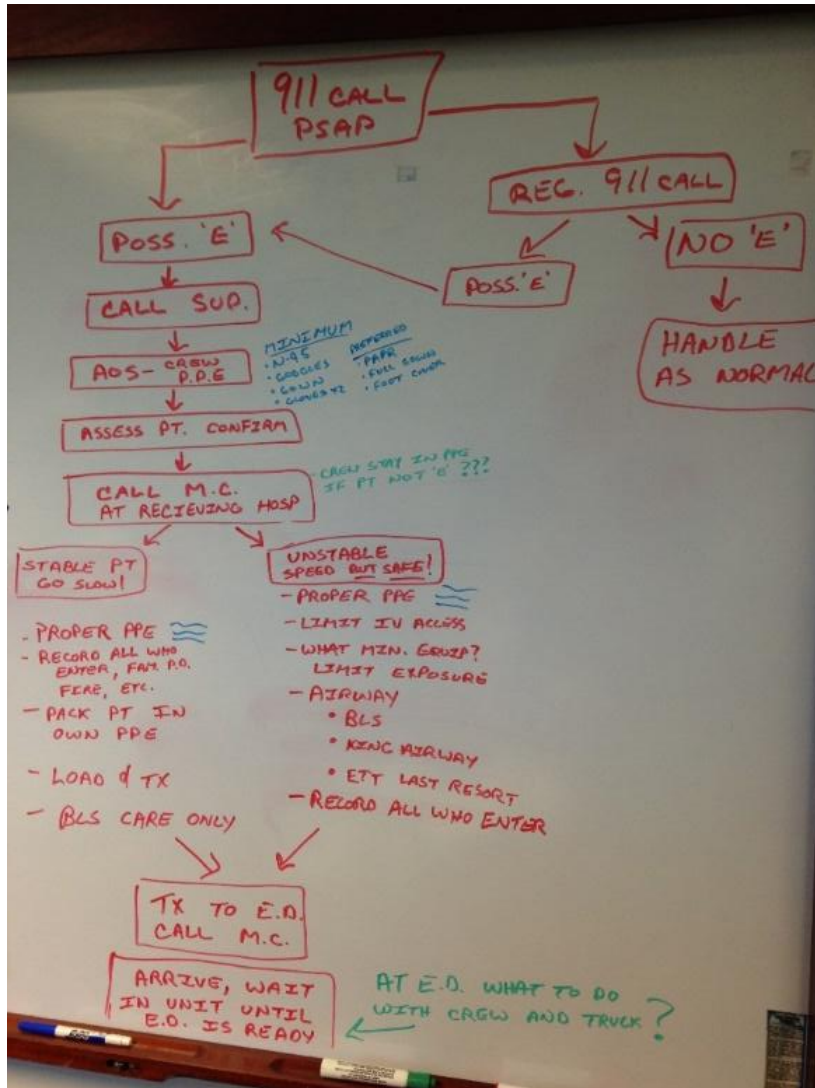 911 CALL
PSAP
REG. 911 CALL
POSS. 'E'
NO 'E'
POSS. 'E'
HANDLE
AS NORMAL
CALL SUP.
AOS - CREW
P.P.E
MINIMUM
• N-95
• GOGGLES
• GOWN
• GLOVES X2
PREFERRED
• PAPR
• FULL GOWN
• FOOT COVER
ASSESS PT. CONFIRM
CALL M.C.
AT RECIEVING HOSP
- CREW STAY IN PPE
IF PT NOT 'E' ???
STABLE PT
GO SLOW!
- PROPER PPE
- RECORD ALL WHO
ENTER, FAM. P.D.
FIRE, ETC.
- PACK PT IN
OWN PPE
- LOAD & TX
- BLS CARE ONLY
UNSTABLE
SPEED BUT SAFE!
- PROPER PPE
- LIMIT IV ACCESS
- WHAT MIN. EQUIP?
LIMIT EXPOSURE
- AIRWAY
• BLS
• KING AIRWAY
• ETT LAST RESORT
- RECORD ALL WHO ENTER
TX TO E.D.
CALL M.C.
ARRIVE, WAIT
IN UNIT UNTIL
E.D. IS READY
AT E.D. WHAT TO DO
WITH CREW AND TRUCK?